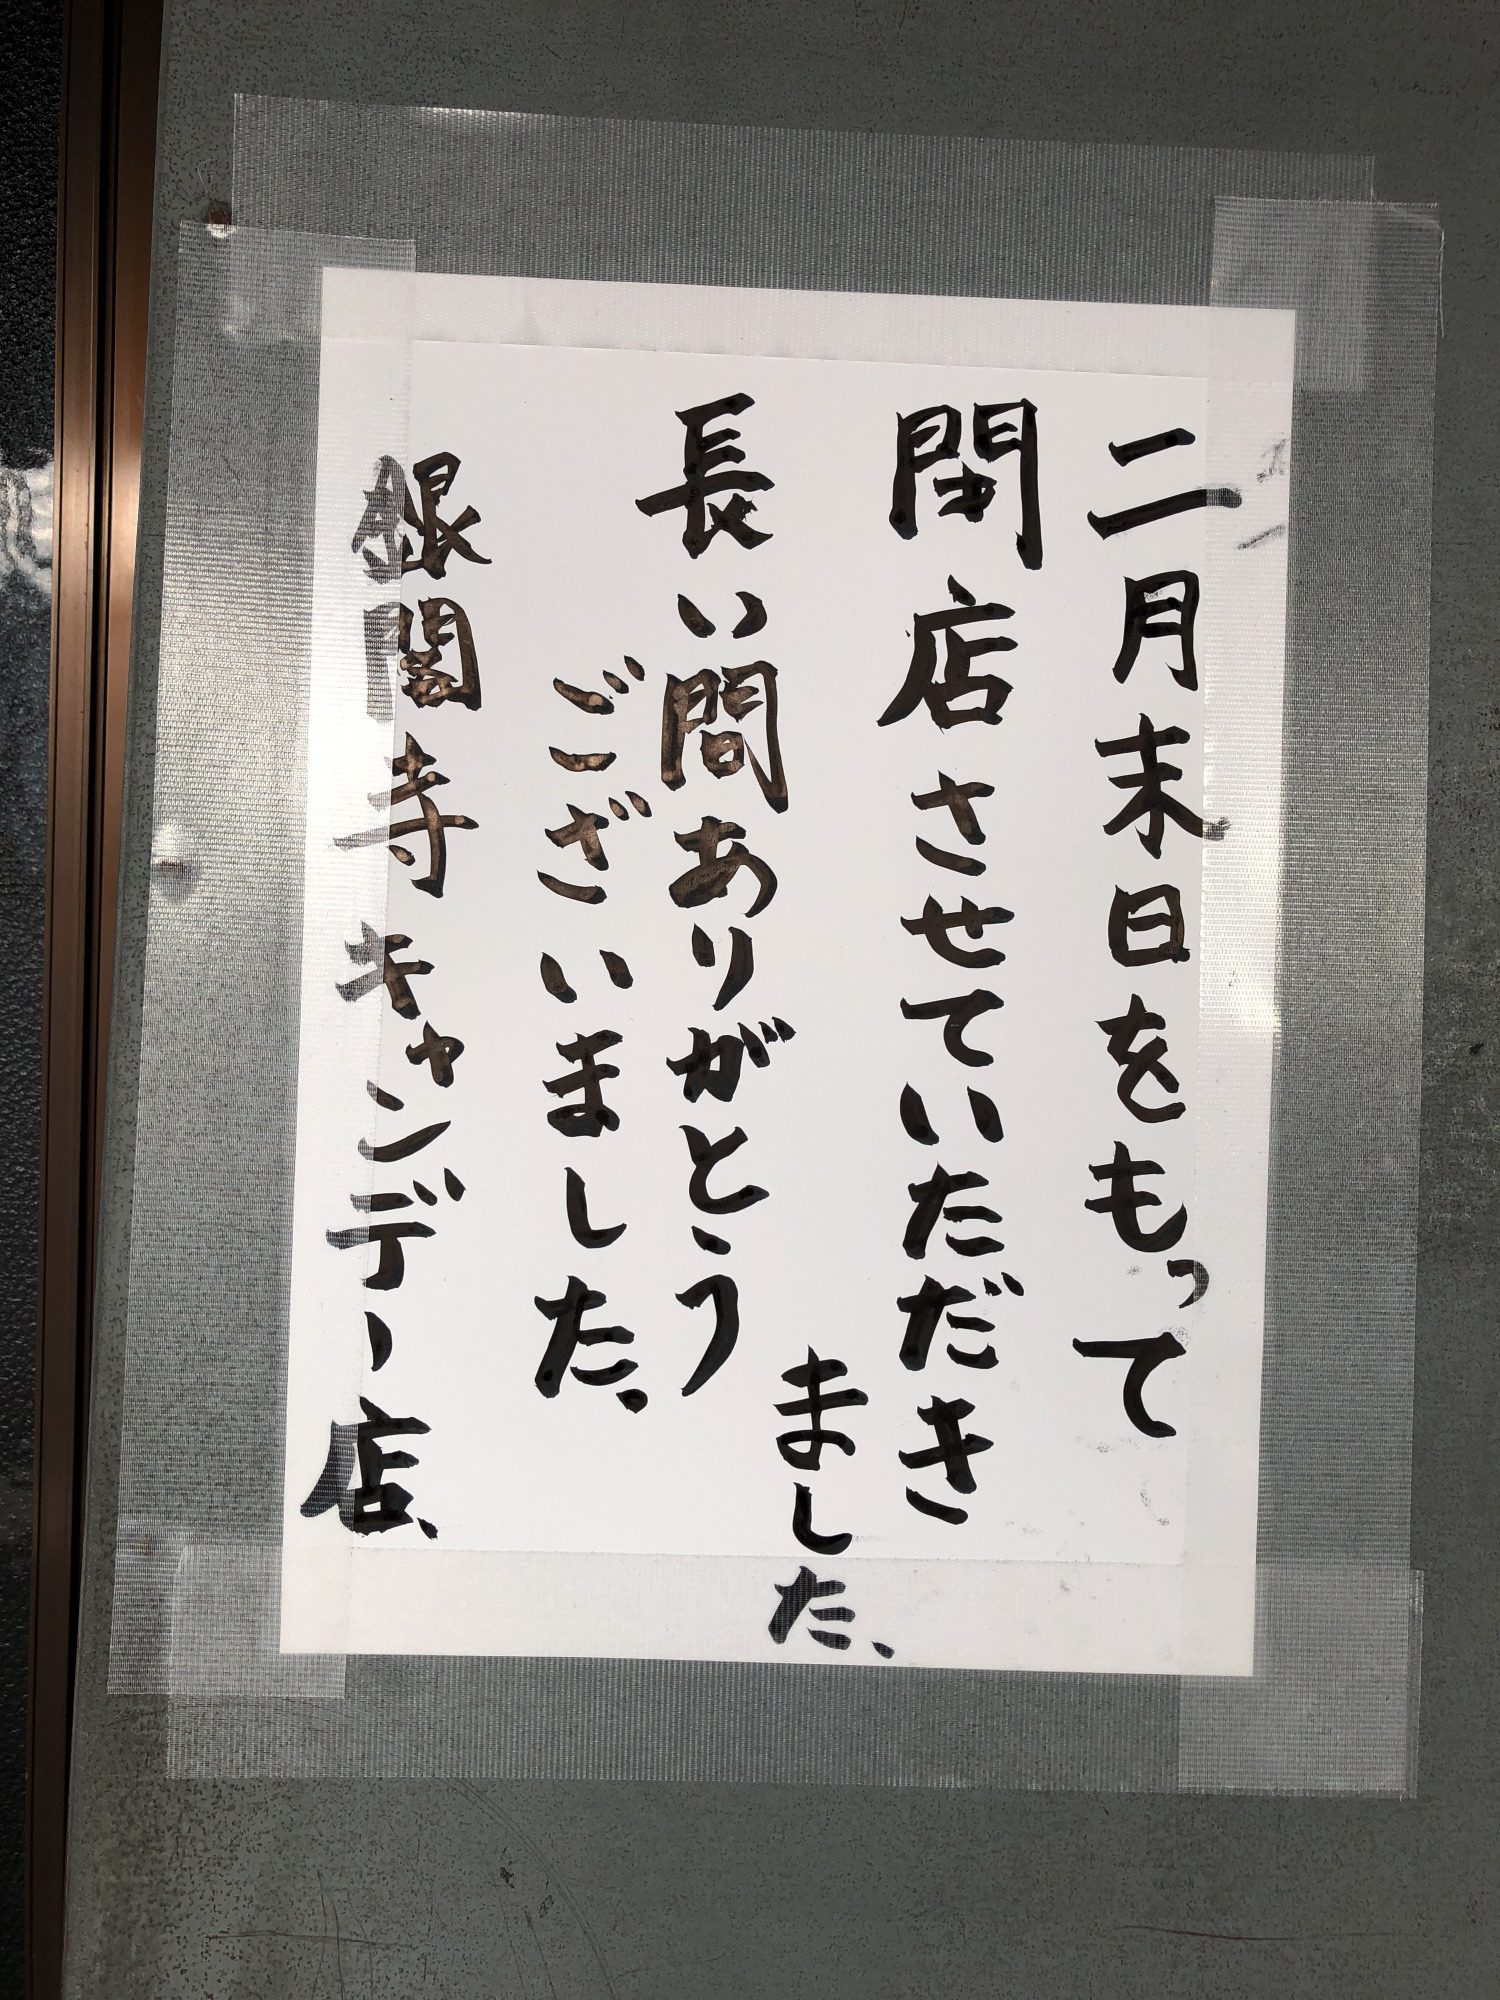 二月末日をもって
閉店させていただき
ました、
長い間ありがとう
ございました。
銀閣寺キャンデー店、